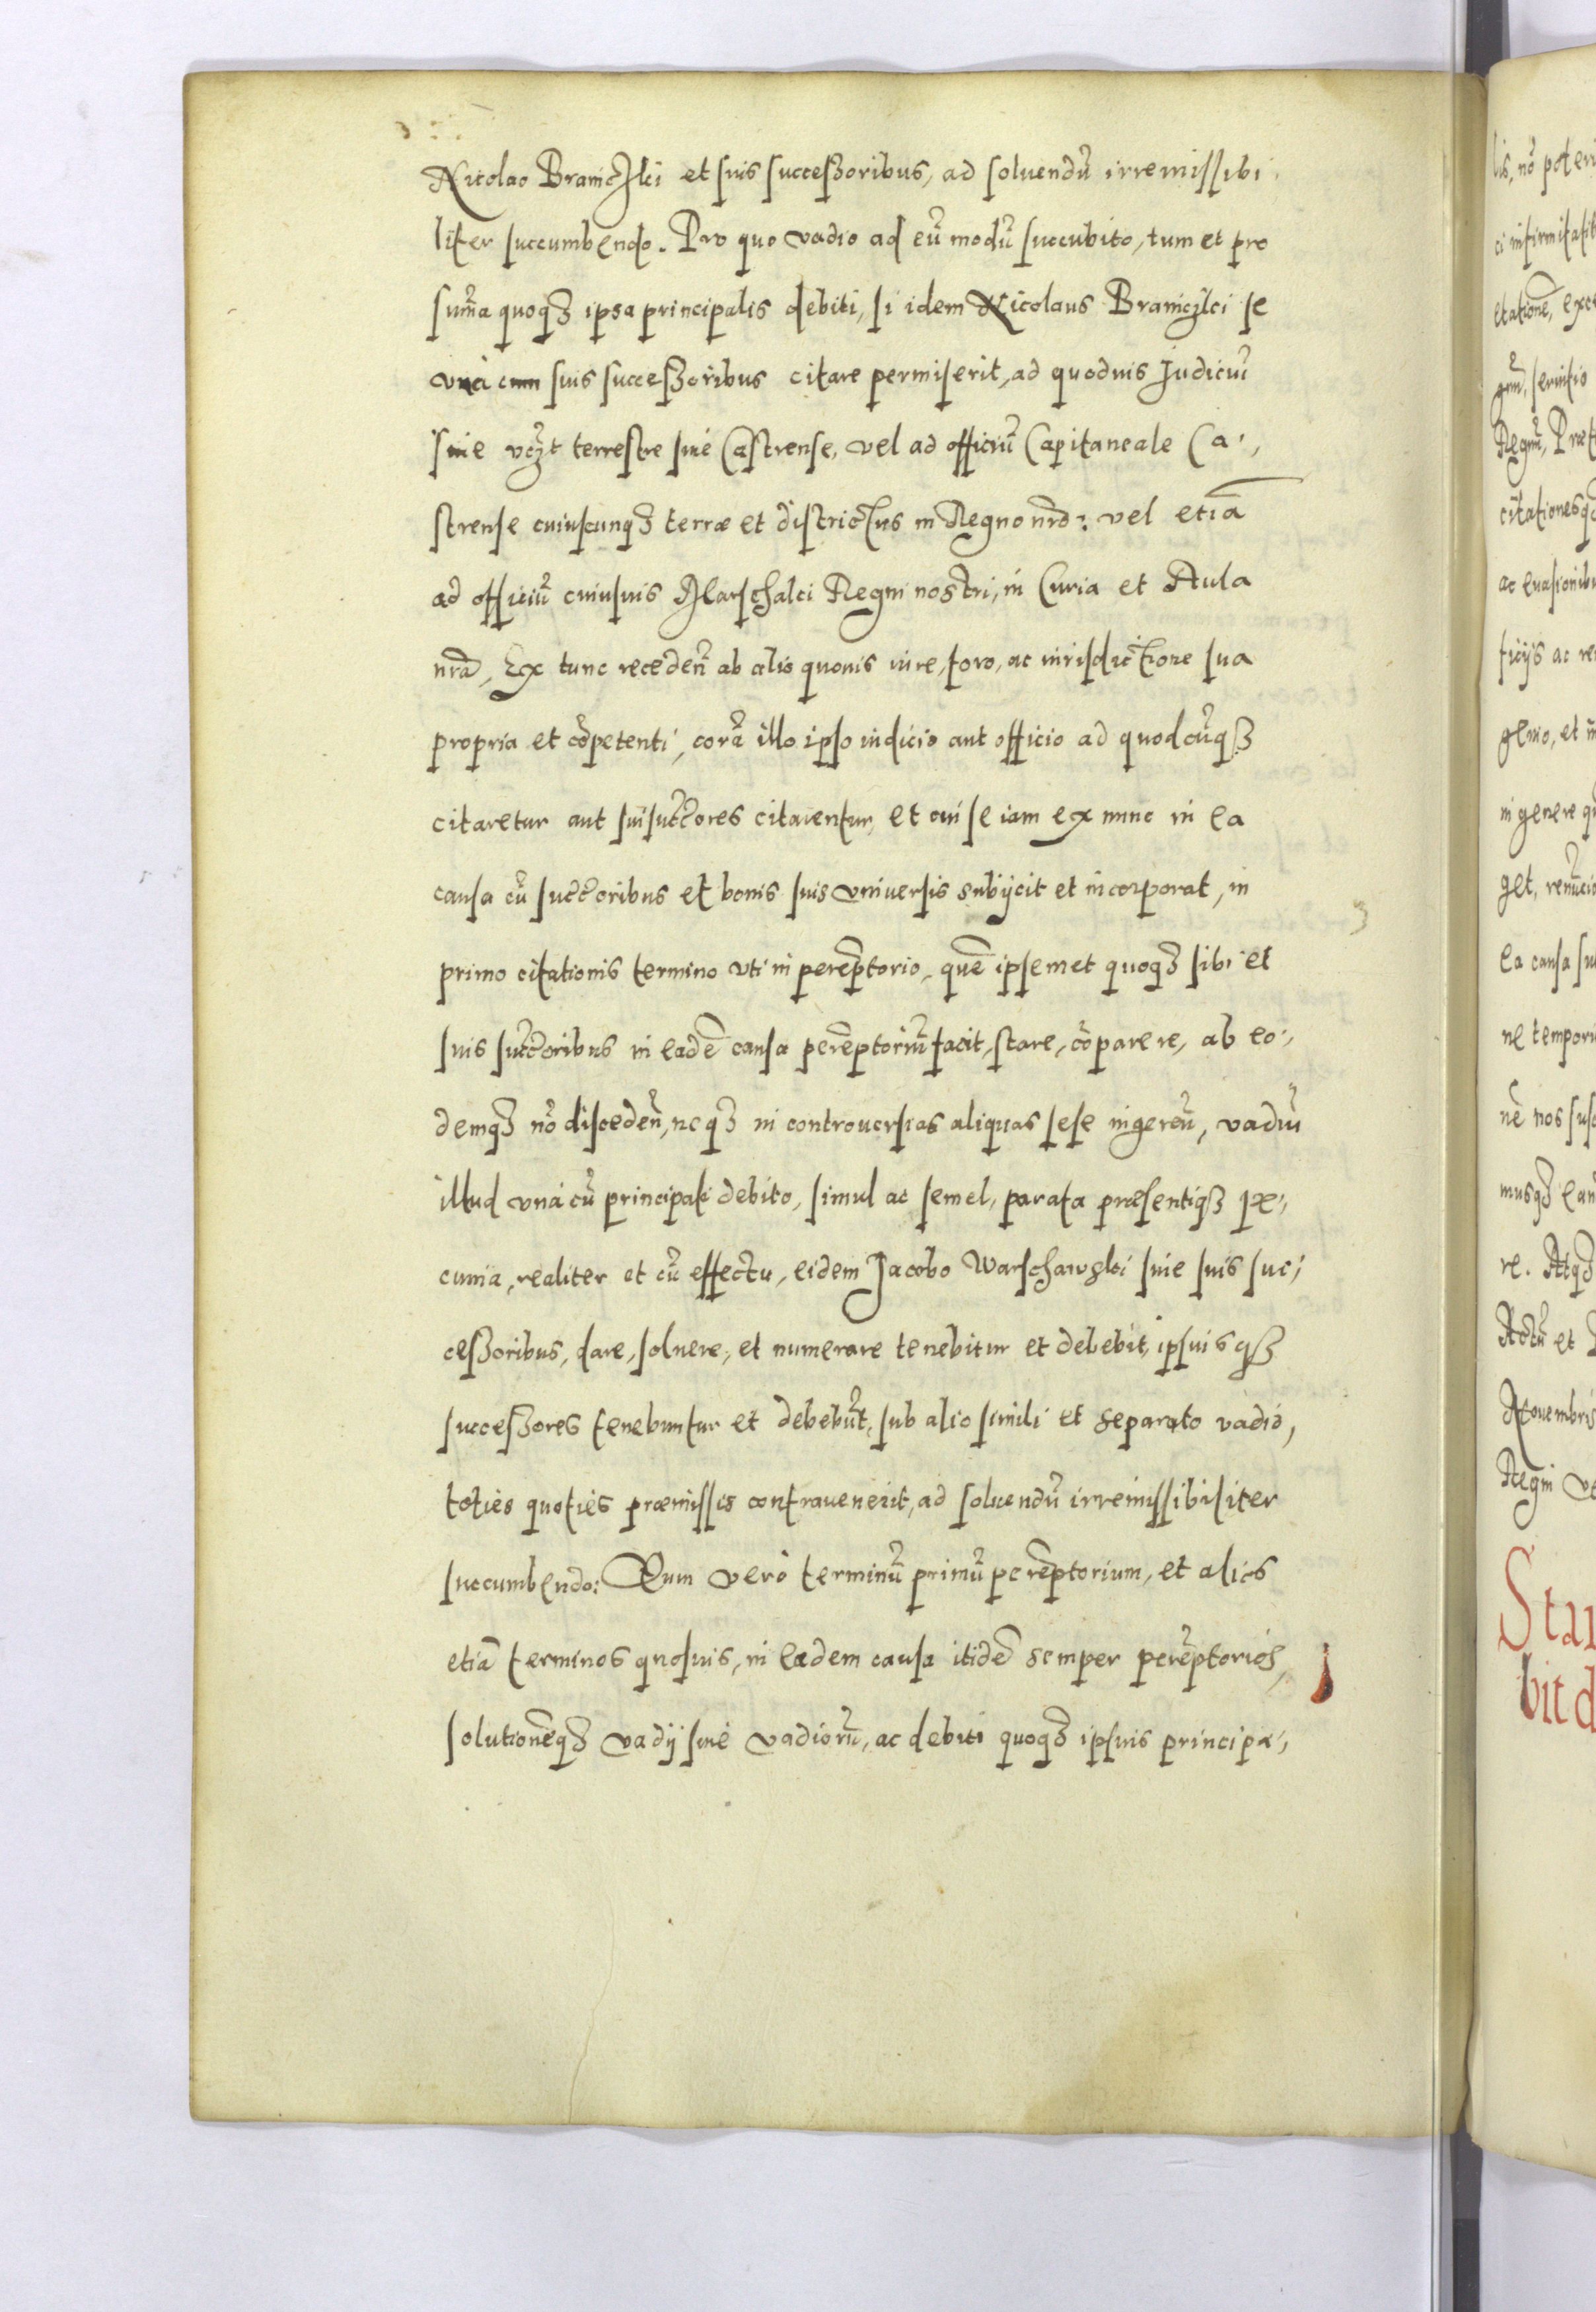 Nicolao Braniczki et suis successoribus, ad soluendũ irremissibi,
liter succumbendo. Pro quo vadio ad eũ modũ succubito, tum et pro
sum̃a quoqʒ ipsa principalis debiti, si idem Nicolaus Braniczki se
vnà cum suis successoribus citare permiserit, ad quoduis Judiciũ
siue vczt terrestre siué Castrense, vel ad officiũ Capitaneale Ca,
strense cuiuscunqʒ terræ et districtus in Regno nr̃o: vel etiã
ad officiũ cuiusuis Marschalci Regni nostri, in Curia et Aula
nrã, Ex tunc recedeñ ab alio quouis iure, foro, ac iurisdictione sua
propria et cõpetenti, corã illo ipso iudicio aut officio ad quodcũqʒ
citaretur aut sui suc̃c̃ores citarentur, et cui se iam ex nunc in ea
causa cũ suc̃c̃oribus et bonis suis vniuersis subijcit et incorporat, in
primo citationis termino vti in perẽptorio, quẽ ipsemet quoqʒ sibi et
suis suc̃c̃oribus in eadẽ causa perẽptoriũ facit, stare, cõparere, ab eo,
demqʒ nõ discedeñ, neqʒ in controuersias aliquas sese ingereñ, vadiũ
illud vnà cũ principali debito, simul ac semel, parata præsentiqʒ pe,
cunia, realiter et cũ effectu, eidem Jacobo Warschawski siue suis suc,
cessoribus, dare, soluere, et numerare tenebitur et debebit, ipsius qʒ
successores tenebuntur et debebũt, sub alio simili et separato vadio,
toties quotiès præmissis contrauenerit, ad soluendũ irremissibiliter
succumbendo: Quum verò terminũ primũ perẽptorium, et alios
etiã terminos quosuis, in eadem causa itidẽ semper perẽptorios,
solutionẽqʒ vadij siué vadiorũ, ac debiti quoqʒ ipsius principa,